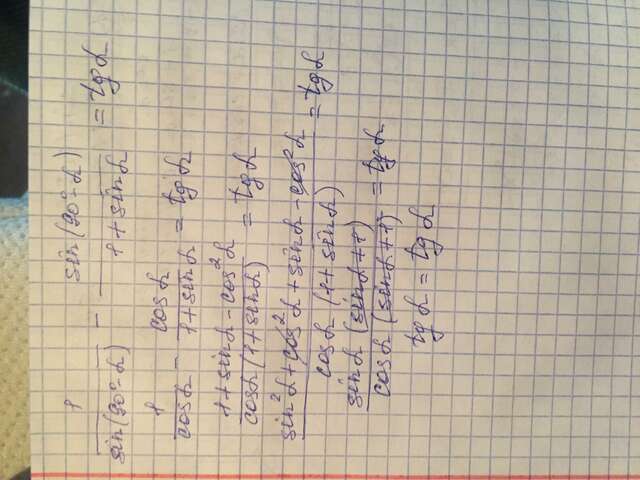 1/sin(90°-α) - sin(90°-α)/1+sinα = tgα
1/cosα - cosα/1+sinα = tgα
1+sinα-cos²α/cosα(1+sinα) = tgα
sin²α+cos²α+sinα-cos²α/cosα(1+sinα) = tgα
sinα(sinα+1)/cosα(sinα+1) = tgα
tgα = tgα